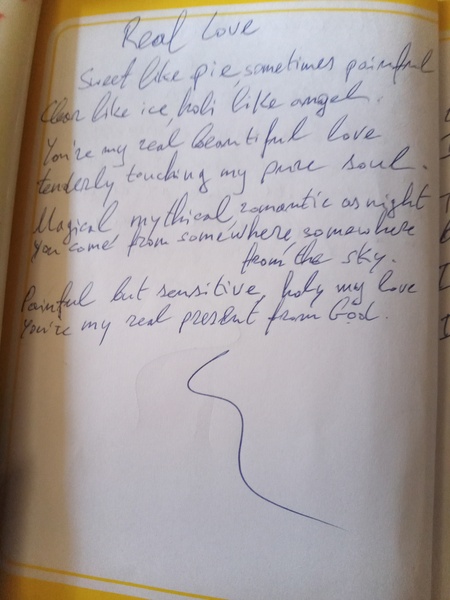 Real Love
Sweet like pie, sometimes painful
Clear like ice, holi like angel.
You're my real beautiful love
tenderly touching my pure soul.
Magical mythical, romantic as night
You come from somewhere, somewhere
from the sky.
Painful but sensitive, holy my love
You're my real present from God.